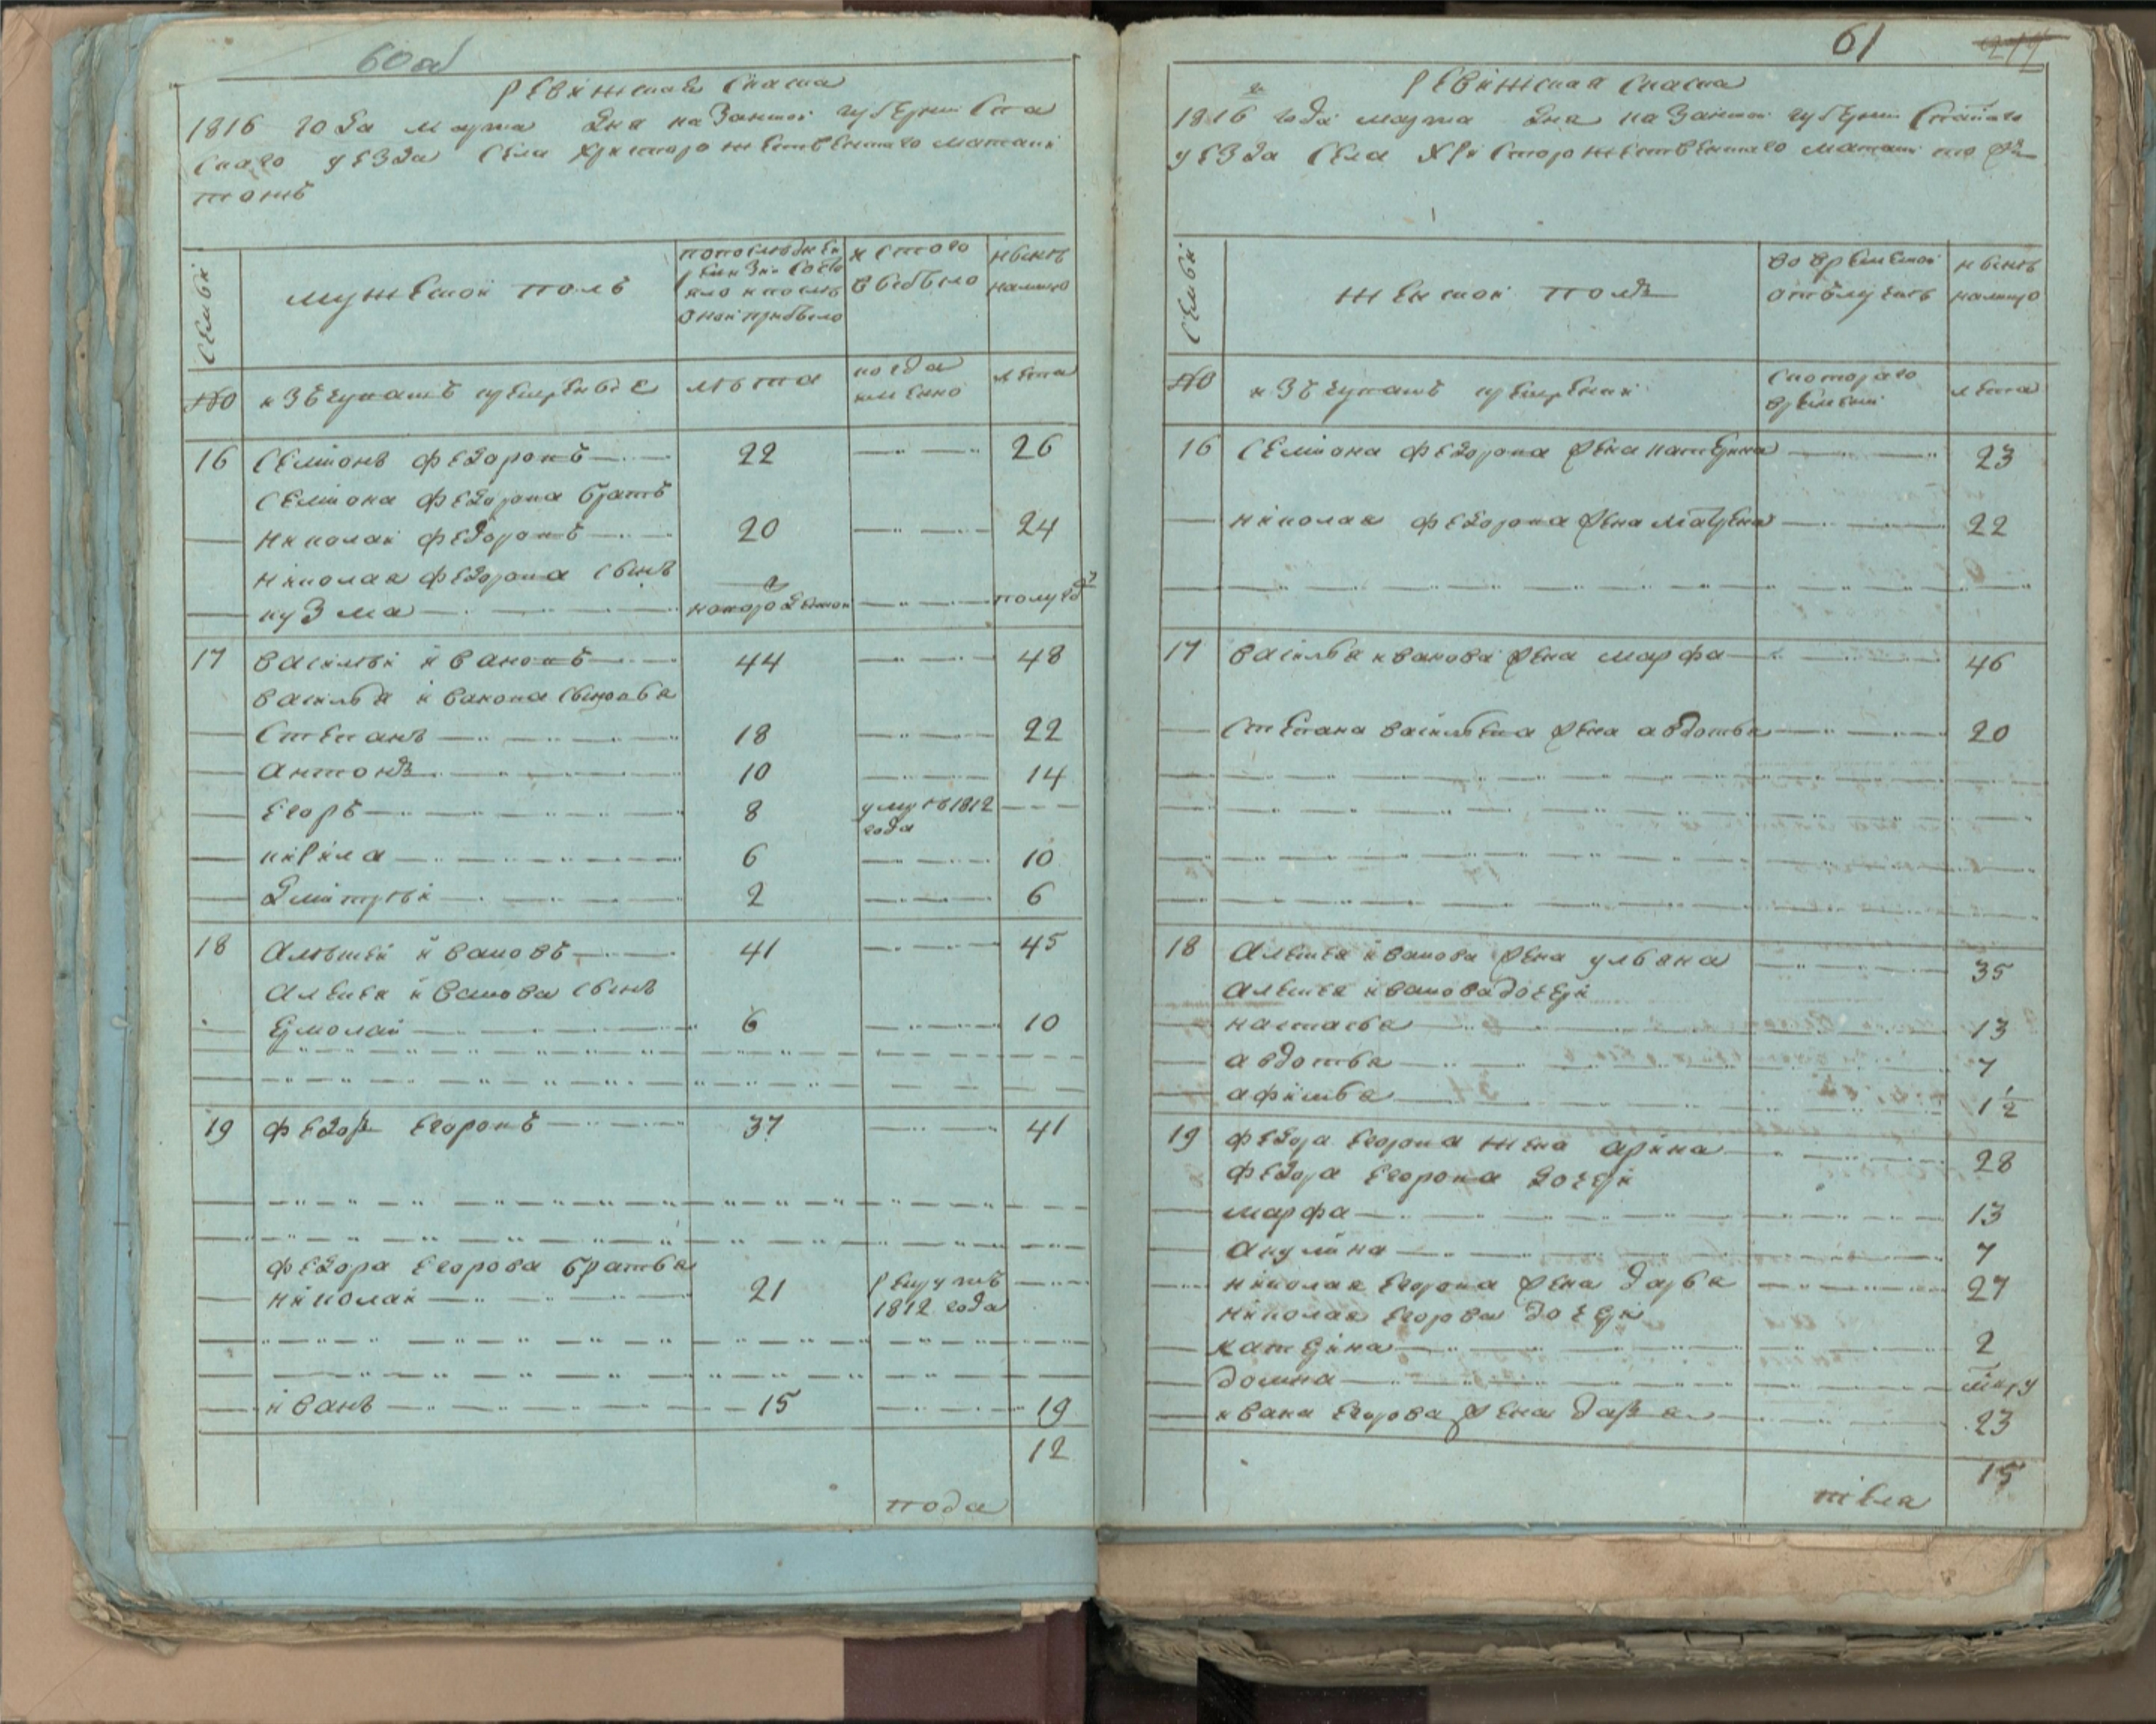 60 об
Ревижская Скаска
1816 года марта дня казанской губернии Спа
скаго уезда села Христорожественнаго матаки
тожъ
семьи
мужеской полъ
попоследней
ревизіи состо
яло и после
оной прибыло
изтого
выбыло
ныне
налицо
№
изъ чувашъ крещеные
лета
когда
именно
лета
16 Семионъ Федоровъ 22 26
Семиона Федорова братъ
Николай Федоровъ 20 24
Николая Федорова сынъ
кузма новорожденой полугоду
17 Василей Ивановъ 44 48
Василья Иванова сыновья
Степанъ 18 22
Антонъ 10 14
Егоръ 8 умре 1812
года
кирила 6 10
Дмитрей 2 6
18 Алексей Ивановъ 41 45
Алексея Иванова сынъ
Ермолай 6 10
19 Федоръ Егоровъ 37 41
Федора Егорова братья
Николай 21 рекрутъ
1812 года
Иванъ 15 19
12
пода
61
Ревижская Скаска
1816 года марта дня казанской губернии Спаскаго
уезда села Христорожественнаго матаки то жъ
семьи
женской полъ
во временной
отлучке
ныне
налицо
№
изъ чувашъ крещеныхъ
скотораго
времени
лета
16 Семиона Федорова жена катерина 23
Николая Федорова жена матрена 22
17 Василья Иванова жена марфа 46
Степана Васильева жена авдотья 20
18 Алексея Иванова жена ульяна 35
Алексея Иванова дочери
настасья 13
авдотья 7
афимья 1 1/2
19 Федора Егорова жена арина 28
Федора Егорова дочери
марфа 13
акулина 7
Николая Егорова жена дарья 27
Николая Егорова дочери
катерина 2
домна
Ивана Егорова жена дарья 23
15